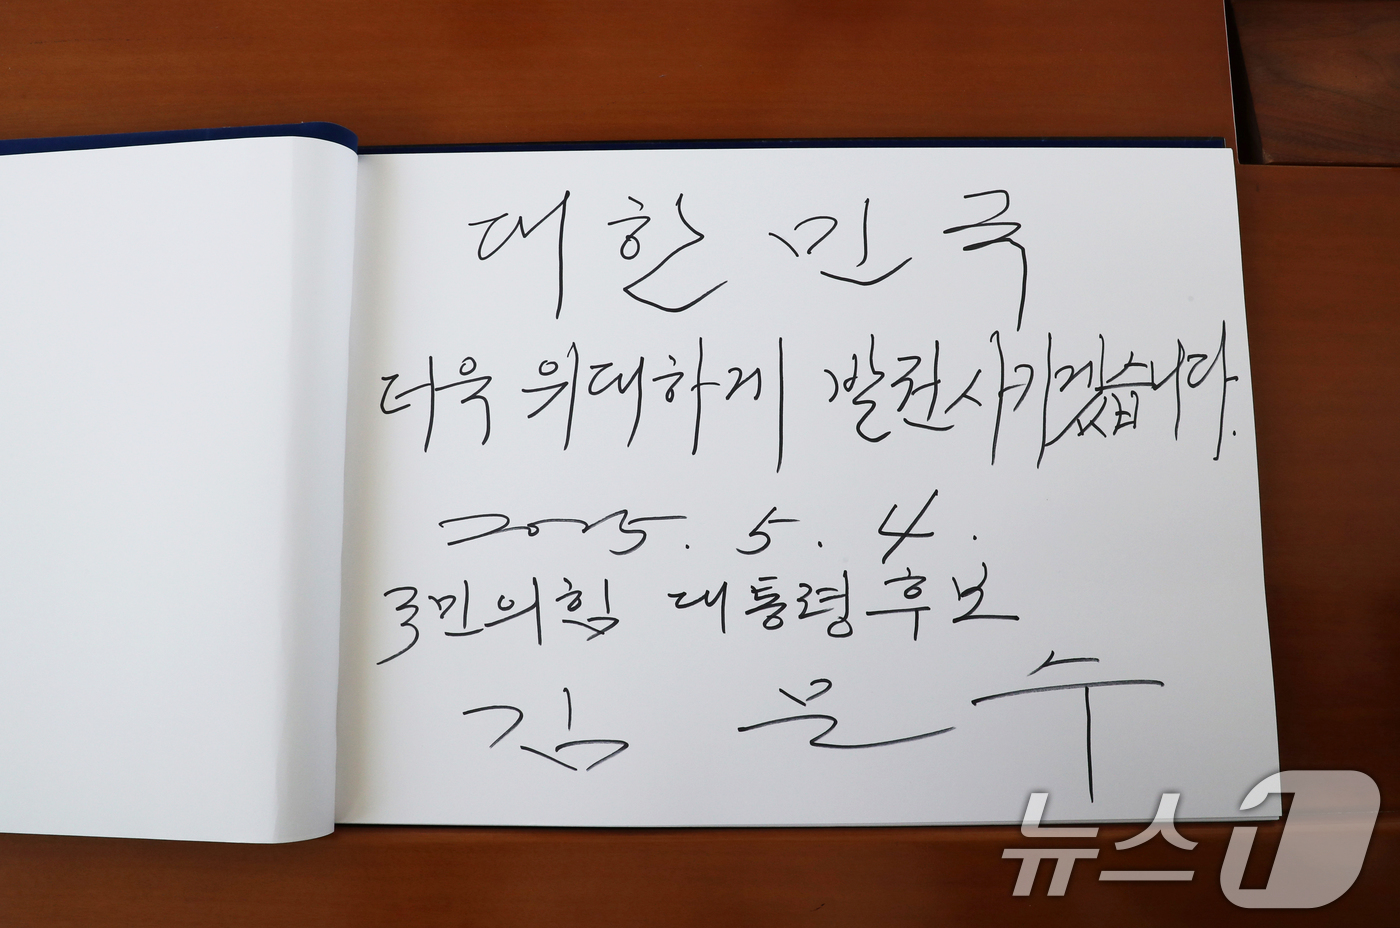 대한민국
더욱 위대하게 발전시키겠습니다.
2025. 5. 4.
국민의힘 대통령후보
김문수
뉴스1